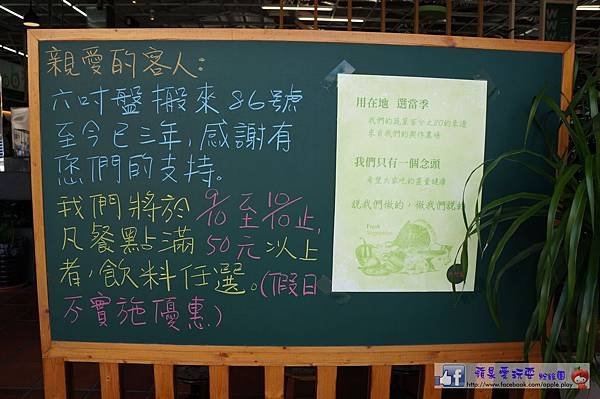 親愛的客人:
六吋盤搬來86號
至今已三年,感謝有
您們的支持。
我們將於9/10至10/10止,
凡餐點滿50元以上
者,飲料任選。(假日
不實施優惠)
用在地 選當季
我們的蔬菜百分之80的來源
來自我們的契作農場
我們只有一個念頭
希望大家吃的盡量健康
說我們做的,做我們說的
Fresh
Vegetables
蘋果愛玩耍 粉絲團
http://www.facebook.com/apple.play